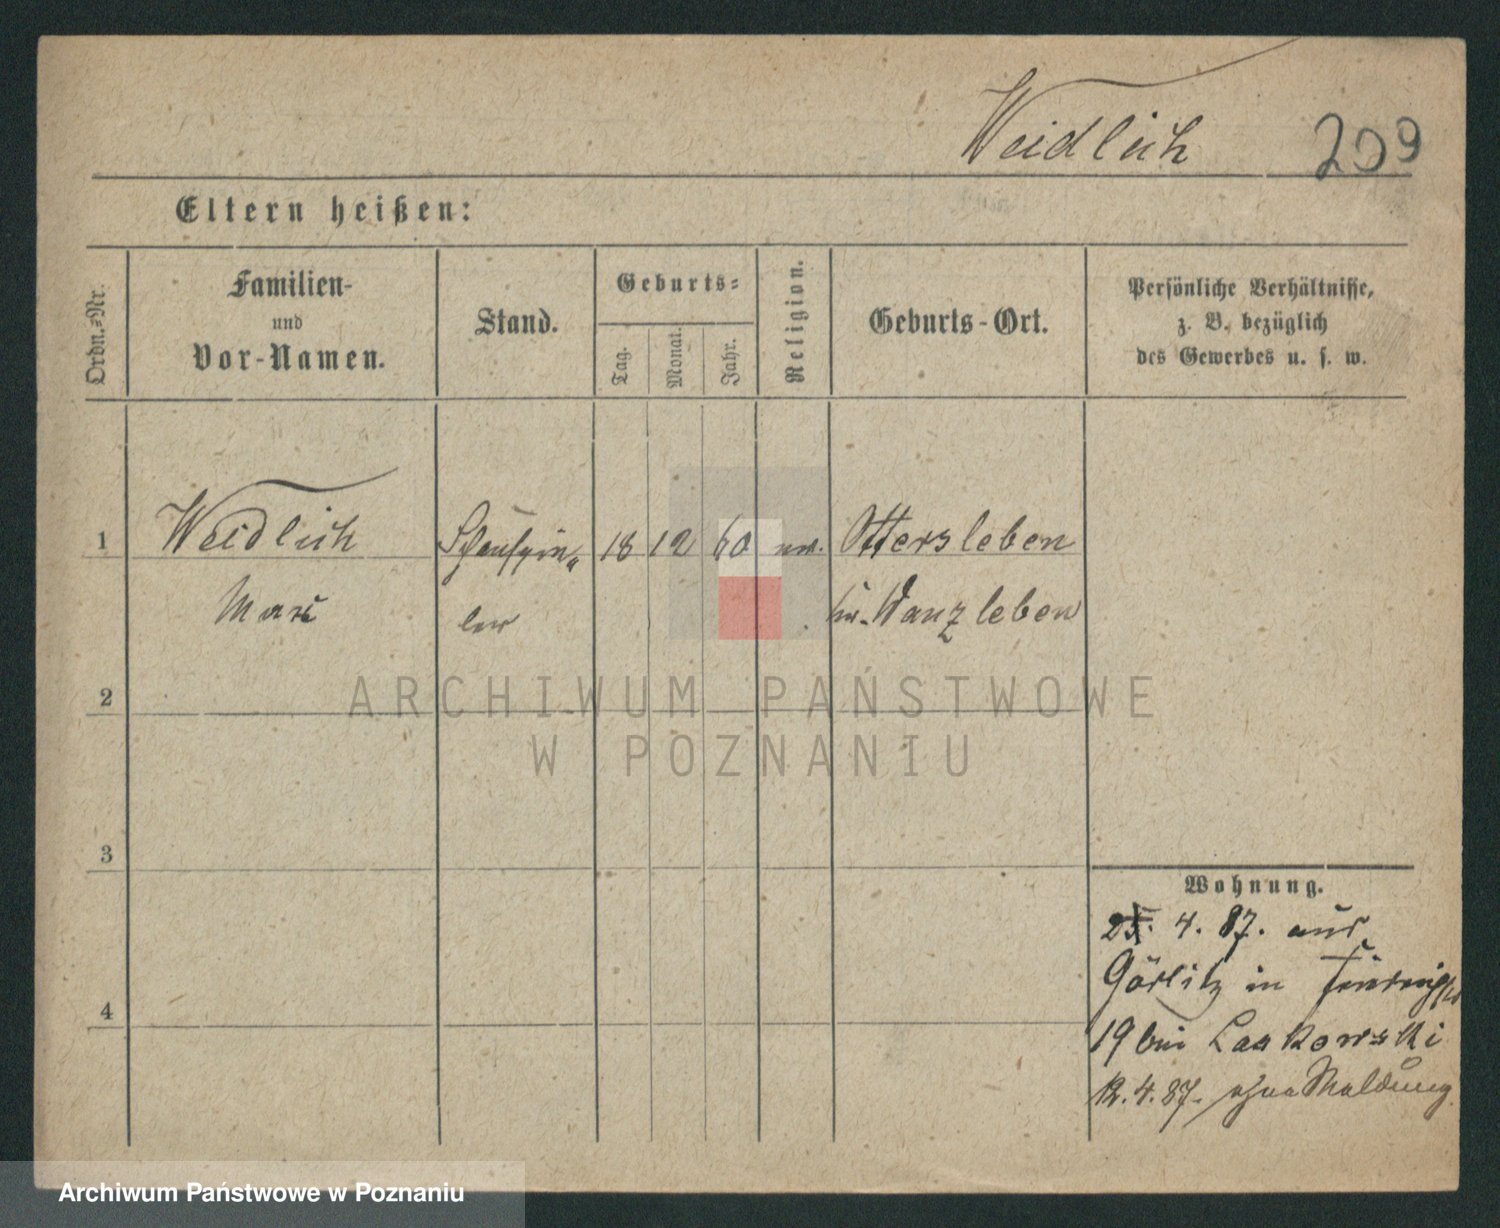 Weidlich 209
Eltern heißen:
Ordn.=Nr.
Familien-
und
Vor-Namen.
Stand.
Geburts=
Tag.
Monat.
Jahr.
Religion.
Geburts-Ort.
Persönliche Verhältnisse,
z. B. bezüglich
des Gewerbes u. s. w.
1 Weidlich Schauspie- 18 12 60 Ottersleben
Max ler Wanzleben
2
ARCHIWUM PAŃSTWOWE
W POZNANIU
3
4
Wohnung.
4. 87. aus
Görlitz in
19 bei Laskowski
12. 4. 87. ohne Meldung
Archiwum Państwowe w Poznaniu